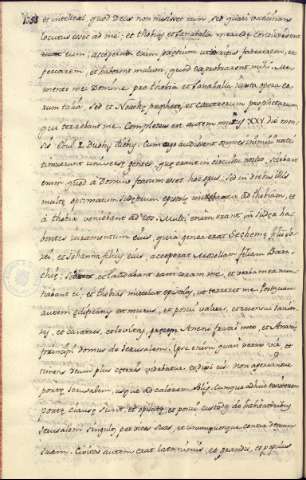 et intellexi, quod Deus non misisset eum, sed quasi vaticinans
locutus esset ad me; et Thobias et Sanaballa
eum; acceperat enim pretium ut territus facerem, et
peccarem, et haberent malum, quod exprobrarent mihi. Me-
mento mei Domine pro Thobia et Sanaballa iuxta opera eo-
rum talia, sed et Noadiæ prophetæ, et cæterorum prophetarum
qui terrebant me. Completus est autem murus XXV die men-
sis Elul 2 diebus. Cum audissent omnes inimici nostri
timuerunt universæ gentes, quæ erant in circuitu nostro, scirent
enim quod a Domino factum esset hoc opus, sed in diebus illis
multæ optimatum Iudæorum epistolæ ad Thobiam, et
a Thobia veniebant ad eos. Multi enim erant in Iudæa ha-
bentes iuramentum eius, quia gener erat Secheniæ filii
et Iohanna filius eius, acceperat Mosollam filiam Bara-
chiæ, sed et laudabant eum coram me, et verba mea nun-
tiabant ei, et Thobias mittebat epistolas, ut terreret me. Postquam
autem ædificatus est murus, et posui valvas, et recensui Ianito-
res, et cantores, et levitas, Aneni fratri meo, et Ananiæ
principi domus de Ierusalem (ipse enim quasi verax vir et
timens Deum plus cæteris videbatur) et dixi eis: non aperiantur
portæ Ierusalem usque ad calorem solis. Cumque adhuc assisterent
portæ clausæ sunt, et oppilatæ, et posui custodes de habitatoribus
Ierusalem singulos per vices suas, et unumquemque contra domum
suam. Civitas autem erat lata nimis, et grandis, et populus